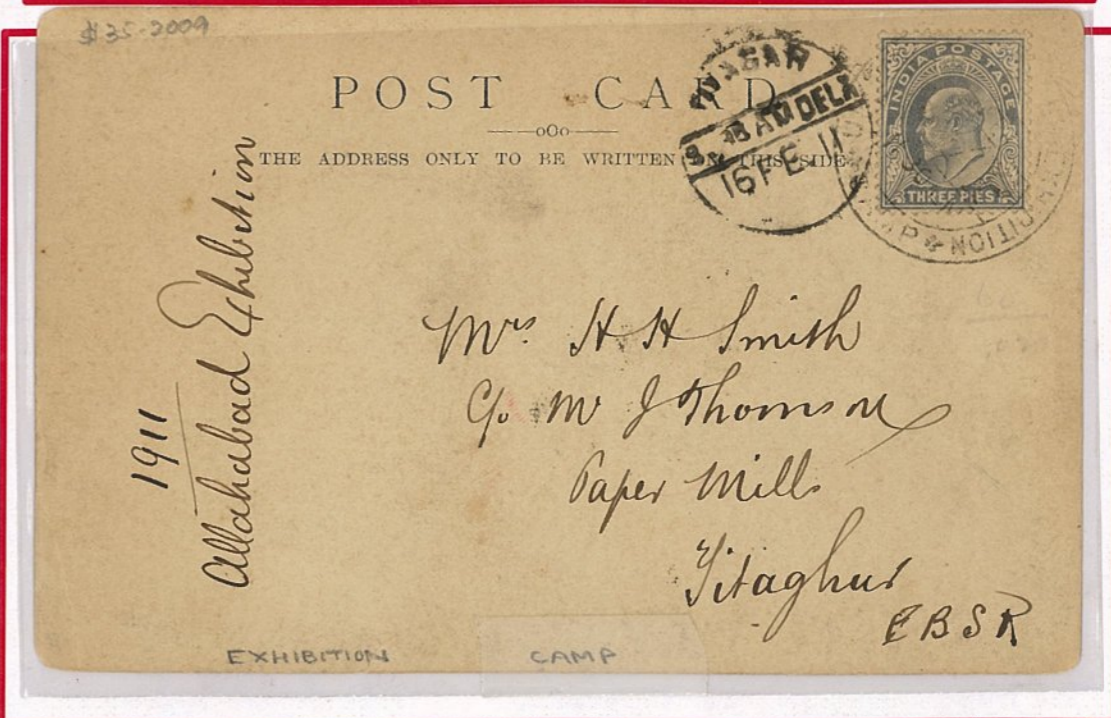 $35-2009
POST CARD
oOo
THE ADDRESS ONLY TO BE WRITTEN ON THIS SIDE
16 FE 11
INDIA POSTAGE
THREE PIES
EXHIBITION CAMP
1911
Allahabad Exhibition
Mrs H H Smith
C/o Mr J Thomson
Paper Mills
Titaghur
EBSR
EXHIBITION CAMP